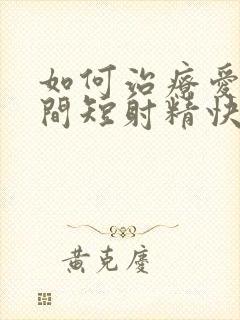 如何治療愛
間短射精快
黃克廈